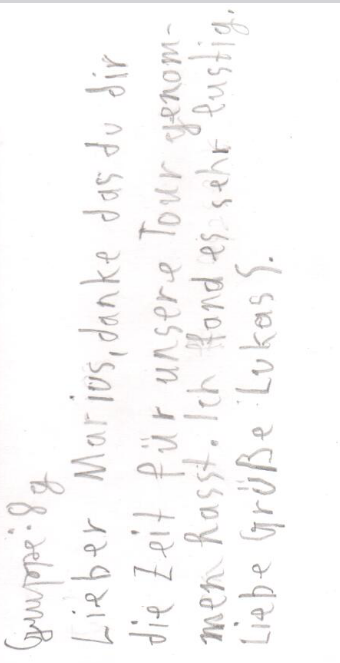 Gruppe: 8 g
Lieber Marius, danke das du dir
die Zeit für unsere Tour genom-
men hasst. Ich fand es sehr lustig.
Liebe Grüße Lukas S.